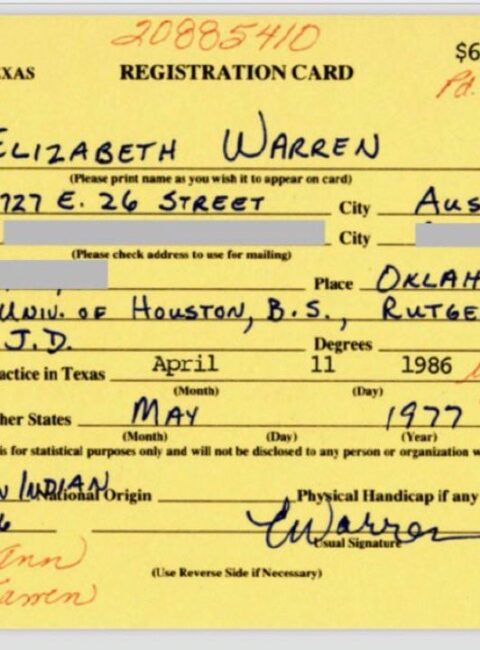 20885410
EXAS REGISTRATION CARD $6
Pd.
ELIZABETH WARREN
(Please print name as you wish it to appear on card)
727 E. 26 STREET City AUS
City
(Please check address to use for mailing)
Place OKLAH
UNIV. OF HOUSTON, B.S., RUTGE
J.D. Degrees
actice in Texas April 11 1986
(Month) (Day)
her States MAY 1977
(Month) (Day) (Year)
is for statistical purposes only and will not be disclosed to any person or organization w
N INDIAN National Origin Physical Handicap if any
6 EWarren
Usual Signature
Ann
Warren
(Use Reverse Side if Necessary)